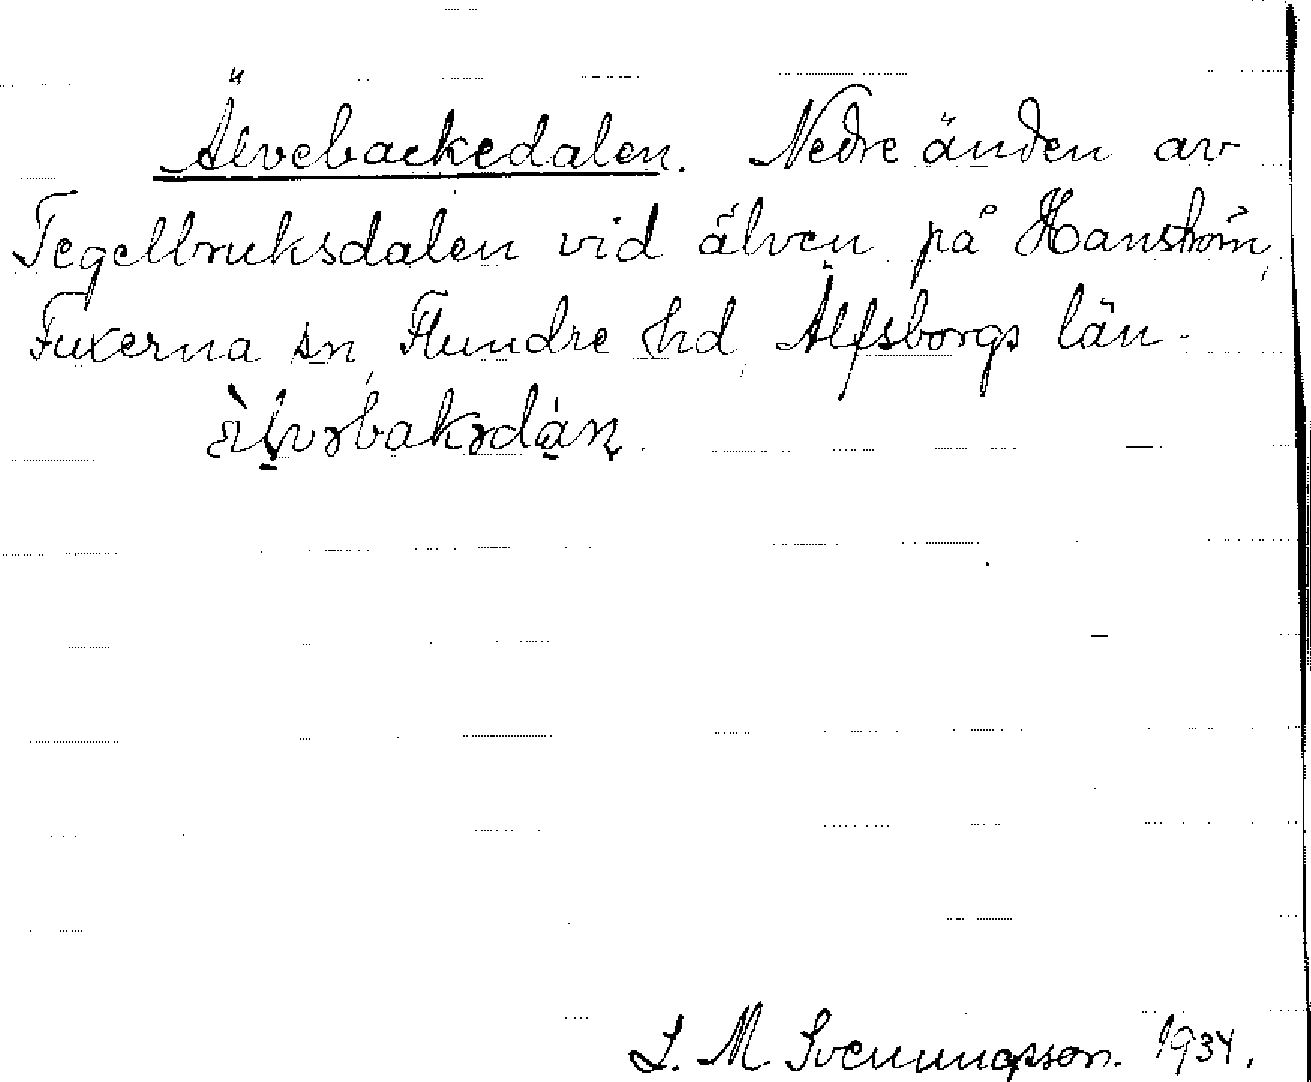 Älvebackedalen. Nedre änden av
Tegelbruksdalen vid älven på Hanström,
Fuxerna sn, Flundre hd, Älfsborgs län.
L. M. Svenungsson. 1934.